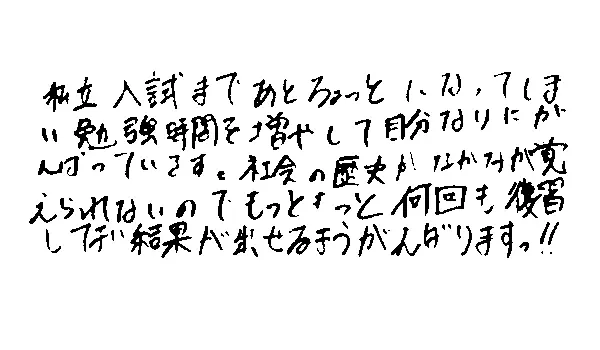 私立入試まであとちょっとになってしま
い勉強時間を増やして自分なりにが
んばっています。社会の歴史がなかなか覚
えられないのでもっともっと何回も復習
して良い結果が出せるようがんばりますっ!!